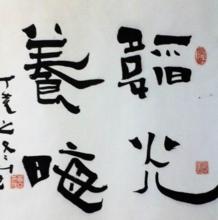 韜光
養晦
丁亥之冬